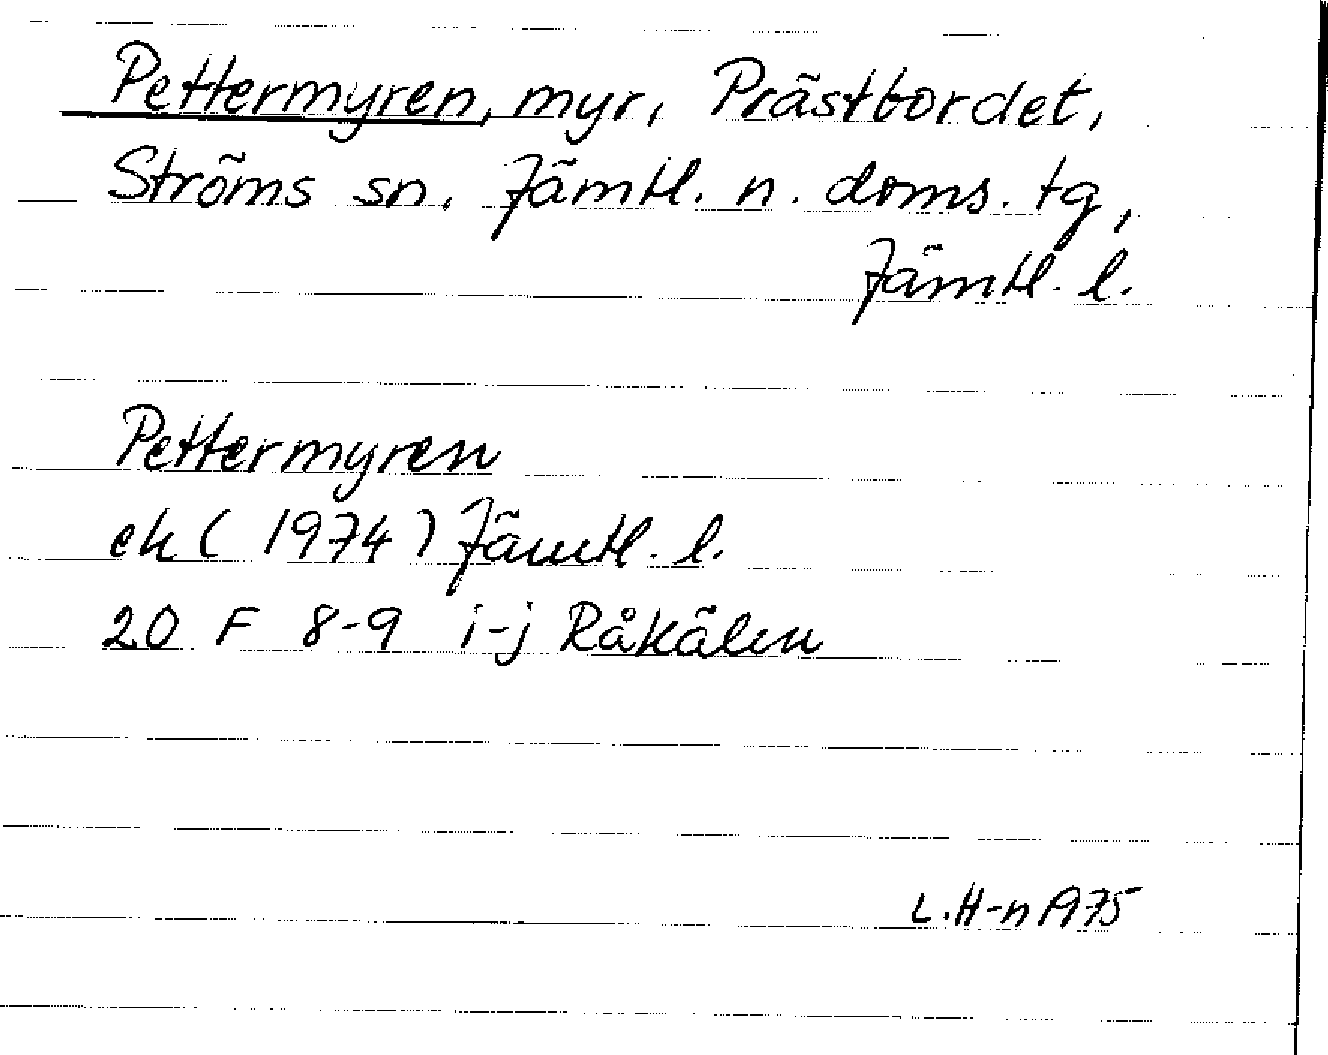 Pettermyren, myr, Prästbordet,
Ströms sn, Jämtl. n. doms. tg,
Jämtl. l.
Pettermyren
ek (1974) Jämtl. l.
20 F 8-9 i-j Råkälen
L.H-n 1975